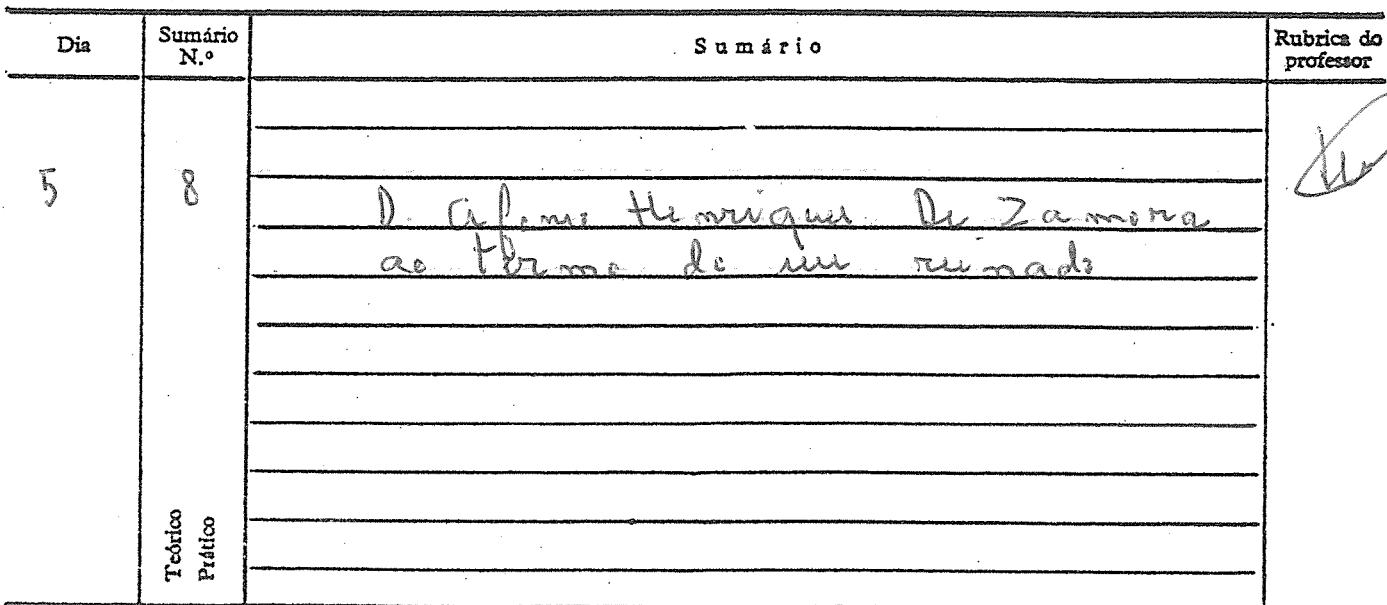 Dia
Sumário N.º
Sumário
Rubrica do professor
5
8
D. Afonso Henriques. De Zamora
ao termo do seu reinado
Teórico
Prático